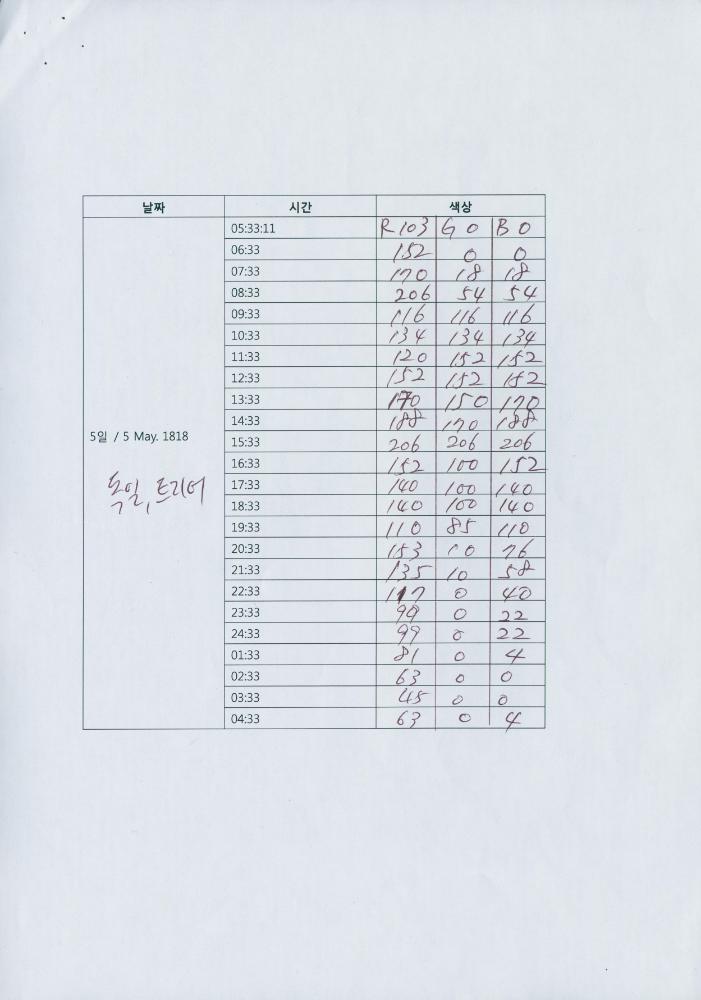 날짜 시간 색상
05:33:11 R 103 G 0 B 0
06:33 152 0 0
07:33 170 18 18
08:33 206 54 54
09:33 116 116 116
10:33 134 134 134
11:33 120 152 152
12:33 152 152 152
13:33 170 150 170
14:33 188 170 188
5일 / 5 May. 1818
15:33 206 206 206
16:33 152 100 152
독일, 트리어
17:33 140 100 140
18:33 140 100 140
19:33 110 85 110
20:33 153 10 76
21:33 135 10 58
22:33 117 0 40
23:33 99 0 22
24:33 99 0 22
01:33 81 0 4
02:33 63 0 0
03:33 45 0 0
04:33 63 0 4